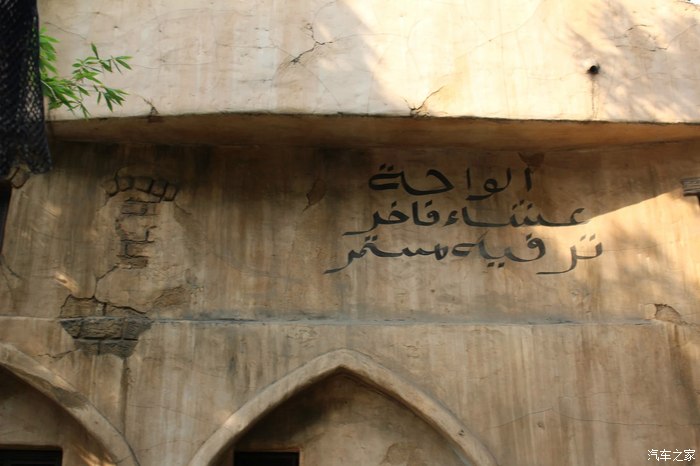 الواحة
عشاء فاخر
ترفيه مستمر
汽车之家